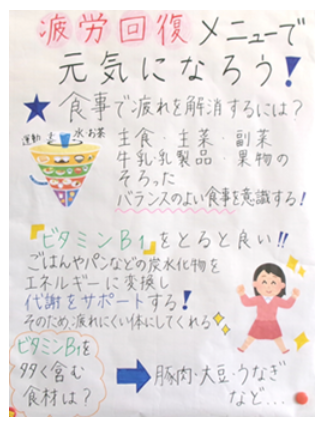 疲労回復メニューで
元気になろう!
★食事で疲れを解消するには?
運動 水・お茶
主食・主菜・副菜
牛乳・乳製品・果物の
そろった
バランスのよい食事を意識する!
『ビタミンB1』をとると良い!!
ごはんやパンなどの炭水化物を
エネルギーに変換し
代謝をサポートする!
そのため疲れにくい体にしてくれる
ビタミンB1を
多く含む
食材は?
➡豚肉・大豆・うなぎ
など…